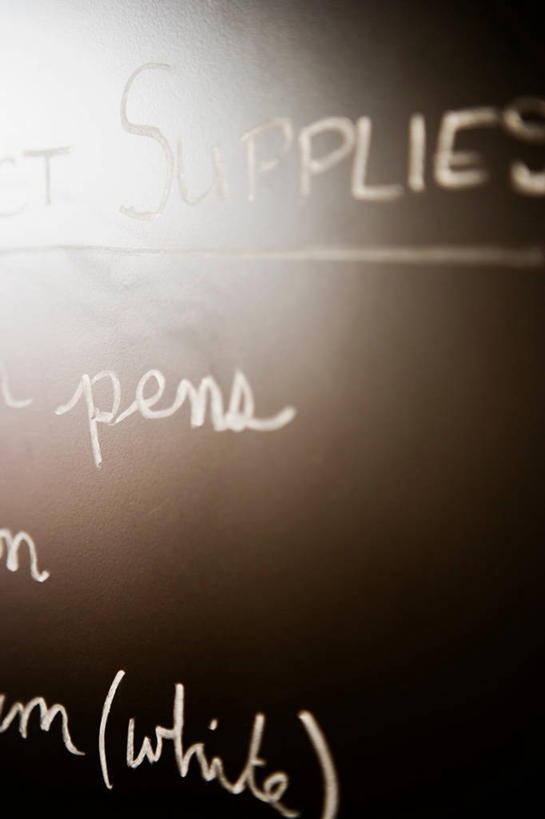 CT SUPPLIES
pens
n
um (white)